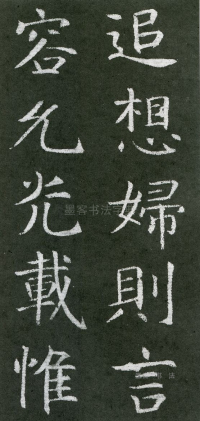 追想婦則言
容允光載惟
墨客书法